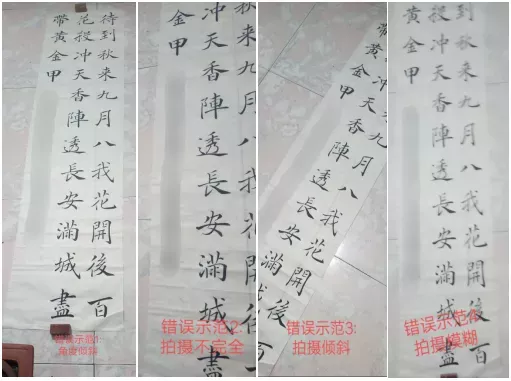 待到秋来九月八我花開後百
花殺冲天香陣透長安滿城盡
带黄金甲
错误示范1
角度倾斜
秋来九月八我花開後
冲天香陣透長安滿城盡
金甲
错误示范2:
拍摄不完全
九月八我花開後百
冲天香陣透長安
带黄金甲
错误示范3:
拍摄倾斜
到秋来九月八我花開後百
殺冲天香陣透長安滿城盡
黄金甲
错误示范4:
拍摄模糊